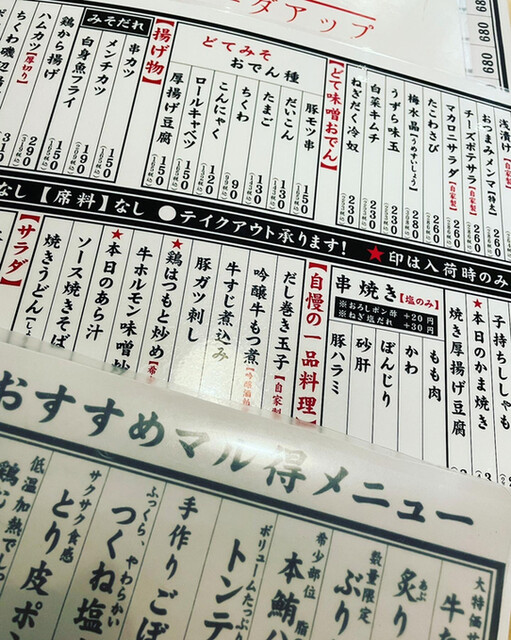 ダアップ
680
680
680
680
浅漬け【自家製】
おつまみメンマ【特大】
チーズポテサラ【自家製】
マカロニサラダ【自家製】
たこわさび
梅水晶【うめすいしょう】
うずら味玉
白菜キムチ
ねぎだく冷奴
260
260
260
260
280
230
230
230
【どて味噌おでん】
どてみそ
おでん種
豚モツ串 150
だいこん 130
たまご 130
ちくわ 90
こんにゃく 90
ロールキャベツ 120
厚揚げ豆腐 150
【揚げ物】
みそだれ
串カツ 150
メンチカツ 150
白身魚フライ 190
鶏から揚げ 150
ハムカツ【厚切り】 290
ちくわ磯辺
なし【席料】なし ●テイクアウト承ります! ★印は入荷時のみ
子持ちししゃも
★本日のかま焼き
焼き厚揚げ豆腐
串焼き【塩のみ】
※おろしポン酢 +20円
※ねぎ塩だれ +30円
もも肉
かわ
ぼんじり
砂肝
豚ハラミ
【自慢の一品料理】
だし巻き玉子【自家製】
吟醸牛もつ煮
牛すじ煮込み
豚ガツ刺し
★鶏はつもと炒め
牛ホルモン味噌炒
★本日のあら汁
ソース焼きそば
焼きうどん
【サラダ】
おすすめマル得メニュー
大特価
牛
炙り
数量限定
ぶり
希少部位
本鮪ハ
ボリュームたっぷり
トンテ
手作りごぼ
ふっくら、やわらかい
つくね塩
サクサク食感
とり皮ポン
低温加熱で
鶏